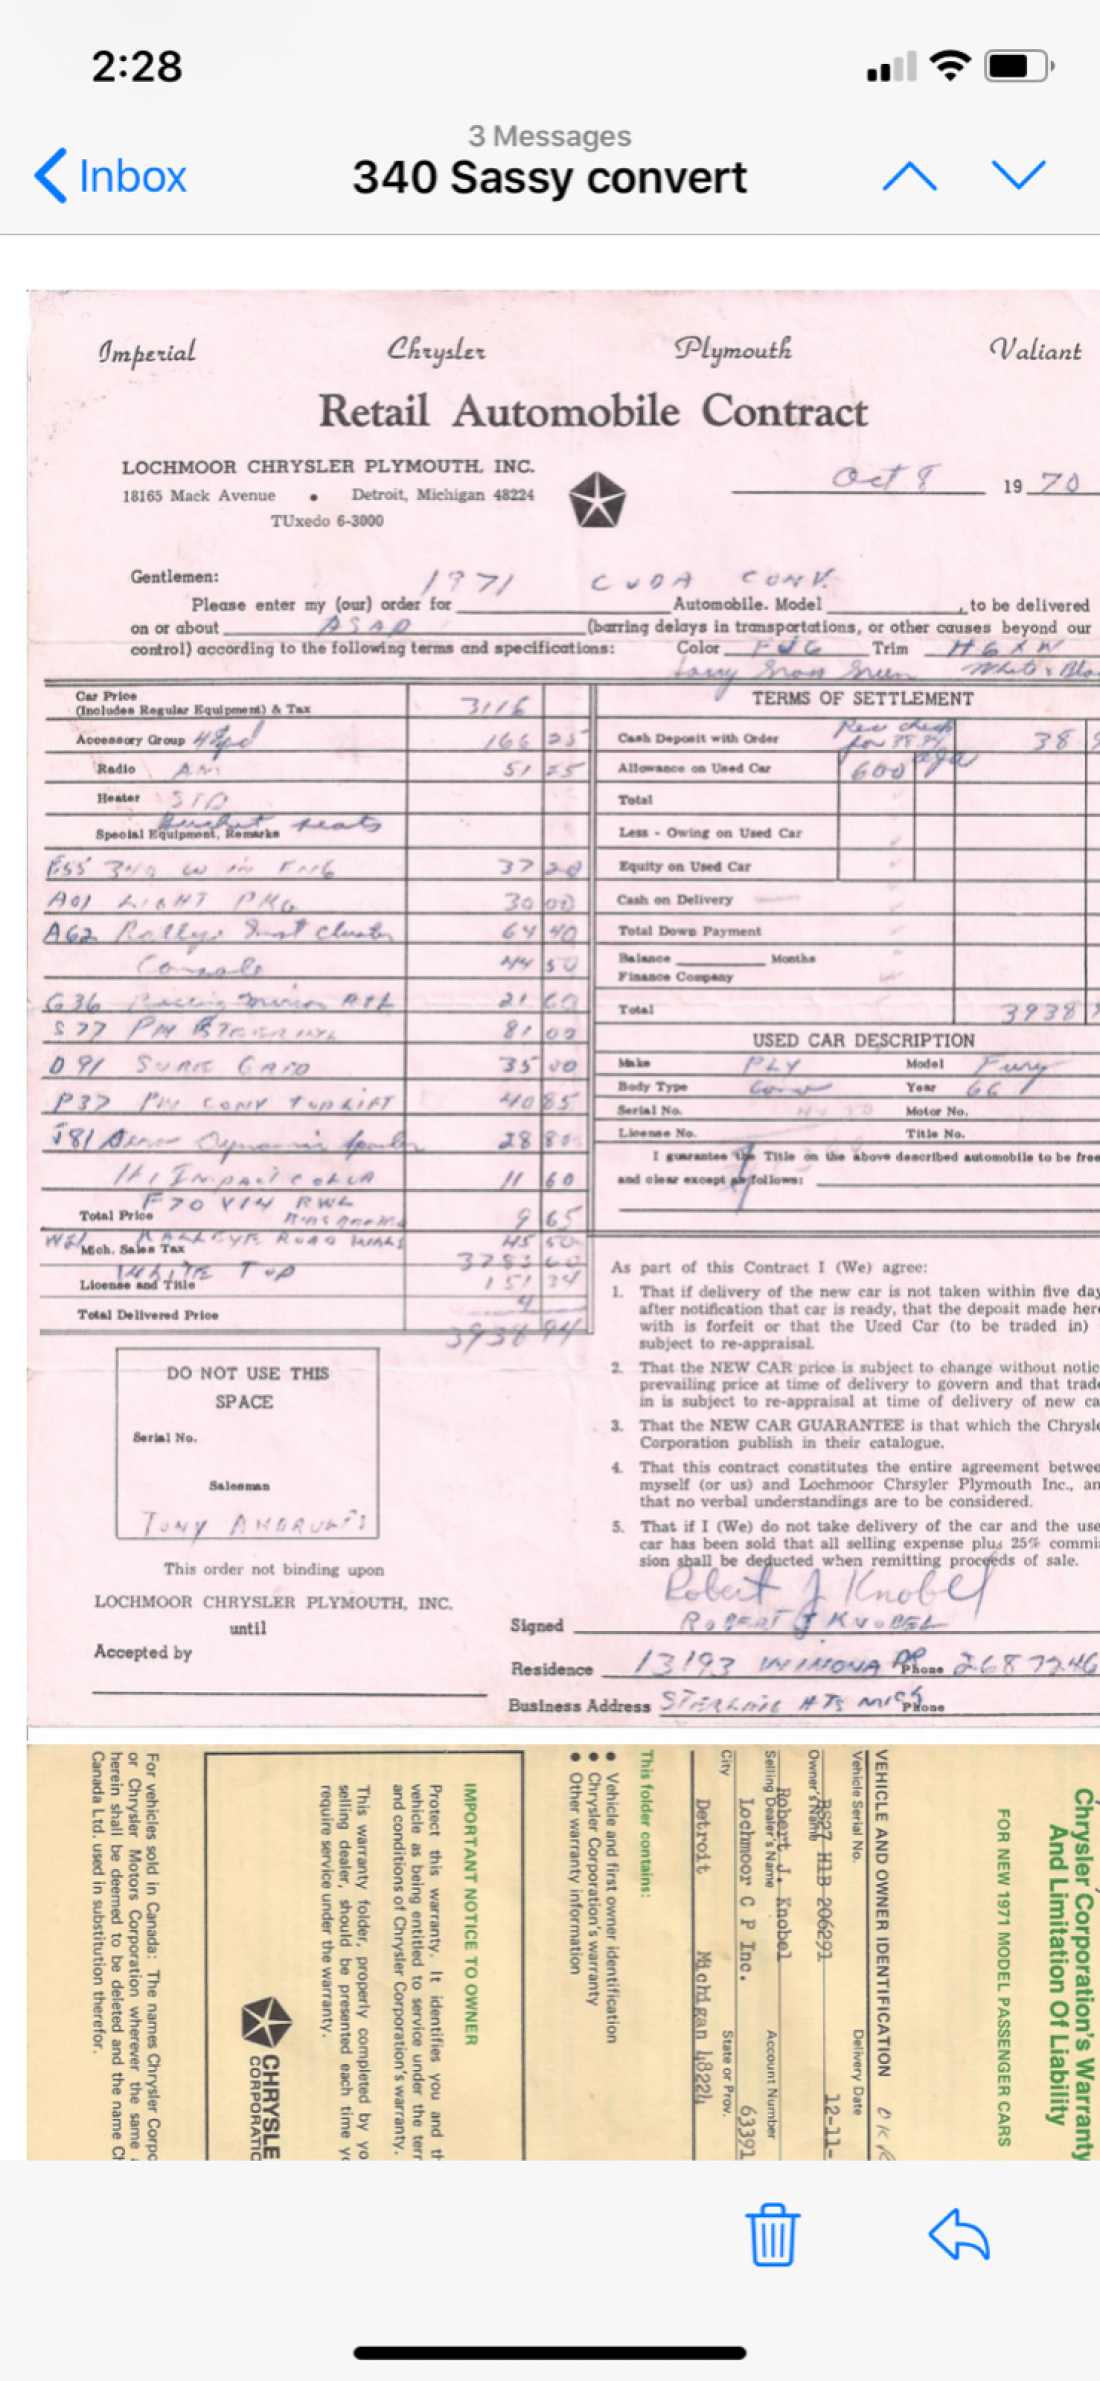 2:28
3 Messages
Inbox
340 Sassy convert
Imperial Chrysler Plymouth Valiant
Retail Automobile Contract
LOCHMOOR CHRYSLER PLYMOUTH, INC.
18165 Mack Avenue • Detroit, Michigan 48224
TUxedo 6-3000
Oct 8 19 70
Gentlemen:
1971 CUDA CONV.
Please enter my (our) order for Automobile. Model , to be delivered
on or about ASAP (barring delays in transportations, or other causes beyond our
control) according to the following terms and specifications: Color FJ6 Trim H6XW
Sassy Grass Green White &
Car Price
(Includes Regular Equipment) & Tax 3116
Accessory Group 4 Spd 166 25
Radio AM 51 55
Heater STD
Bucket seats
Special Equipment, Remarks
E55 340 W in ENG 37 20
A01 LIGHT PKG 30 00
A62 Rallye Inst cluster 64 40
Console 44 50
G36 Racing mirrors 21 60
S77 PW STEERING 81 00
D91 SURE GRIP 35 00
P37 PW CONV TOP LIFT 40 85
J81 Aero Dynamic Spoiler 28 80
HI IMPACT COLOR 11 60
F70 X 14 RWL
Total Price 9 65
W21 RALLEYE ROAD WHLS 45 50
Mich. Sales Tax 3783 60
WHITE TOP
License and Title 151 34
4
Total Delivered Price
3938 94
TERMS OF SETTLEMENT
Rec check
for 38.94
Cash Deposit with Order 38
Allowance on Used Car 600
Total
Less - Owing on Used Car
Equity on Used Car
Cash on Delivery
Total Down Payment
Balance Months
Finance Company
Total 3938
USED CAR DESCRIPTION
Make PLY Model Fury
Body Type Conv Year 66
Serial No. Motor No.
License No. Title No.
I guarantee the Title on the above described automobile to be free
and clear except as follows:
As part of this Contract I (We) agree:
1. That if delivery of the new car is not taken within five day
after notification that car is ready, that the deposit made here
with is forfeit or that the Used Car (to be traded in)
subject to re-appraisal.
2. That the NEW CAR price is subject to change without notic
prevailing price at time of delivery to govern and that trade
in is subject to re-appraisal at time of delivery of new ca
3. That the NEW CAR GUARANTEE is that which the Chrysle
Corporation publish in their catalogue.
4. That this contract constitutes the entire agreement betwee
myself (or us) and Lochmoor Chrsyler Plymouth Inc., an
that no verbal understandings are to be considered.
5. That if I (We) do not take delivery of the car and the use
car has been sold that all selling expense plus 25% commi
sion shall be deducted when remitting proceeds of sale.
DO NOT USE THIS
SPACE
Serial No.
Salesman
TONY
This order not binding upon
LOCHMOOR CHRYSLER PLYMOUTH, INC.
until
Accepted by
Robert J Knobel
Signed ROBERT J KNOBEL
Residence 13193 WINONA DR Phone 2687246
Business Address STERLING HTS MICH Phone
Chrysler Corporation's Warranty
And Limitation Of Liability
FOR NEW 1971 MODEL PASSENGER CARS
VEHICLE AND OWNER IDENTIFICATION
Vehicle Serial No. Delivery Date
BS27 H1B 206291 12-11-
Owner's Name
Robert J. Knobel
Selling Dealer's Name Account Number
Lochmoor C P Inc. 63391
City State or Prov.
Detroit Michigan 48224
This folder contains:
• Vehicle and first owner identification
• Chrysler Corporation's warranty
• Other warranty information
IMPORTANT NOTICE TO OWNER
Protect this warranty. It identifies you and th
vehicle as being entitled to service under the terr
and conditions of Chrysler Corporation's warranty.
This warranty folder, properly completed by yo
selling dealer, should be presented each time yo
require service under the warranty.
CHRYSLE
CORPORATIO
For vehicles sold in Canada: The names Chrysler Corpo
or Chrysler Motors Corporation wherever the same
herein shall be deemed to be deleted and the name Ch
Canada Ltd. used in substitution therefor.